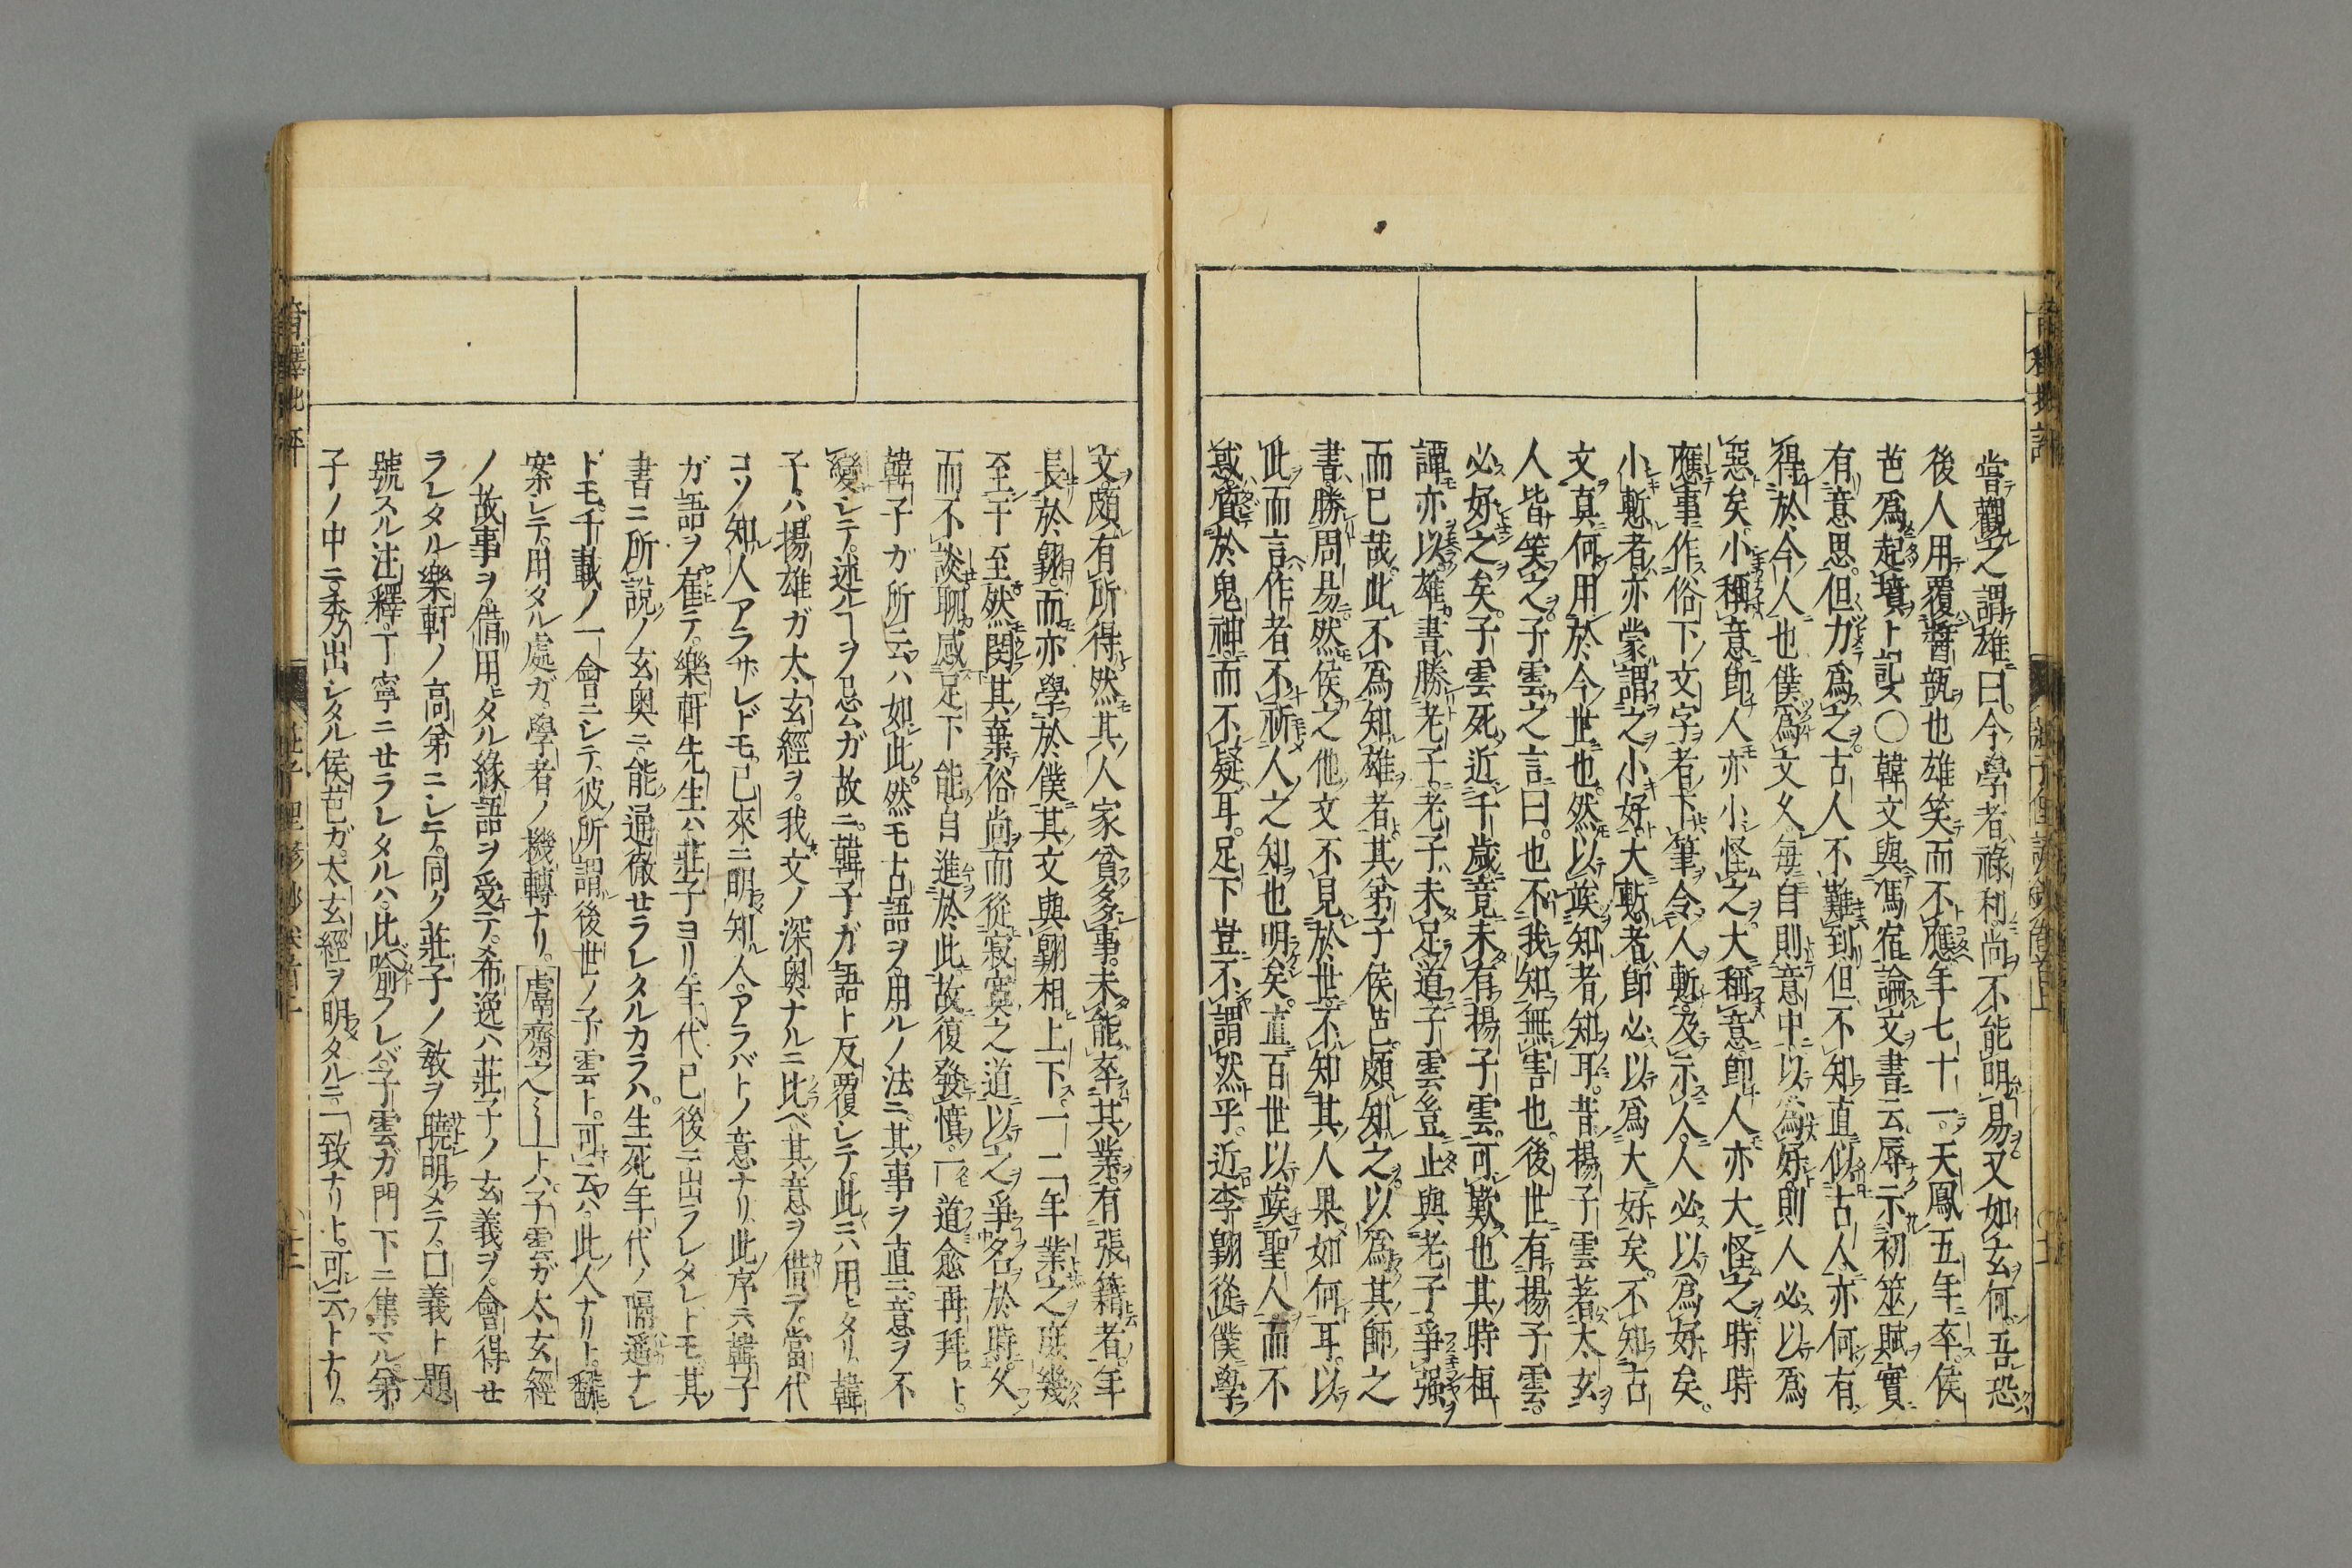 嘗觀之謂雄曰今學者祿利尚不能明易又如玄何吾恐
後人用覆醬瓿也雄笑而不應年七十一天鳳五年卒侯
芭爲起墳ト記ス〇韓文與馮宿論文書云辱示初筮賦實
有意思但力爲之古人不難到但不知直似古人亦何有
得於今人也僕爲文久每自則意中以爲好則人必以爲
惡矣小稱意即人亦小怪之大稱意即人亦大怪之時時
應事作俗下文字者下筆令人慙及示人人必以爲好矣
小慙者亦蒙謂之小好大慙者即必以爲大好矣不知古
文真何用於今世也然以竢知者知耳昔揚子雲著太玄
人皆笑之子雲之言曰也不我知無害也後世有揚子雲
必好之矣子雲死近千歲竟未有揚子雲可歎也其時桓
譚亦以雄書勝老子老子未足道子雲豈止與老子爭强
而已哉此不爲知雄者其弟子侯芭頗知之以爲其師之
書勝周易然侯之他文不見於世不知其人果如何耳以
此而言作者不祈人之知也明矣直百世以竢聖人而不
惑質於鬼神而不疑耳足下豈不謂然乎近李翺從僕學
文頗有所得然其人家貧多事未能卒其業有張籍者年
長於翺而亦學於僕其文與翺相上下一二年業之庶幾
至于至然閔其棄俗尚而從寂寞之道以之爭名於時久
而不談聊感足下能自進於此故復發憤一道愈再拜ト
韓子ガ所云ハ如此然モ古語ヲ用ルノ法ニ其事ヲ直ニ意ヲ不
變シテ述ルヿヲ忌ムガ故ニ韓子ガ語ト反覆シテ此ニハ用ヒタリ韓
子ハ揚雄ガ太玄經ヲ我文ノ深奥ナルニ比ベ其意ヲ借テ當代
コソ知人アラザレドモ已來ニ明知人アラバトノ意ナリ此序ハ韓子
ガ語ヲ雇テ樂軒先生ハ莊子ヨリ年代已後ニ出ラレタレドモ其
書ニ所説ノ玄奥ニ能通徹セラレタルカラハ生死年代ノ隔遥ナレ
ドモ千載ノ一會ニシテ彼所謂後世ノ子雲ト可云ハ此人ナリト飜
案シテ用タル處ガ學者ノ機轉ナリ鬳齋之ヘ〻トハ子雲ガ太玄經
ノ故事ヲ借用ヒタル緣語ヲ受テ希逸ハ莊子ノ玄義ヲ會得セ
ラレタル樂軒ノ高弟ニシテ同ク莊子ノ敎ヲ曉明メテ口義ト題
號スル注釋丁寧ニセラレタルハ此喩フレバ子雲ガ門下ニ集マル弟
子ノ中ニ秀出シタル侯芭ガ太玄經ヲ明タルニ一致ナリト可云トナリ